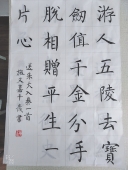 游人五陵去寶
劍值千金分手
脫相贈平生一
片心
送朱大入秦一首
嘉平
書